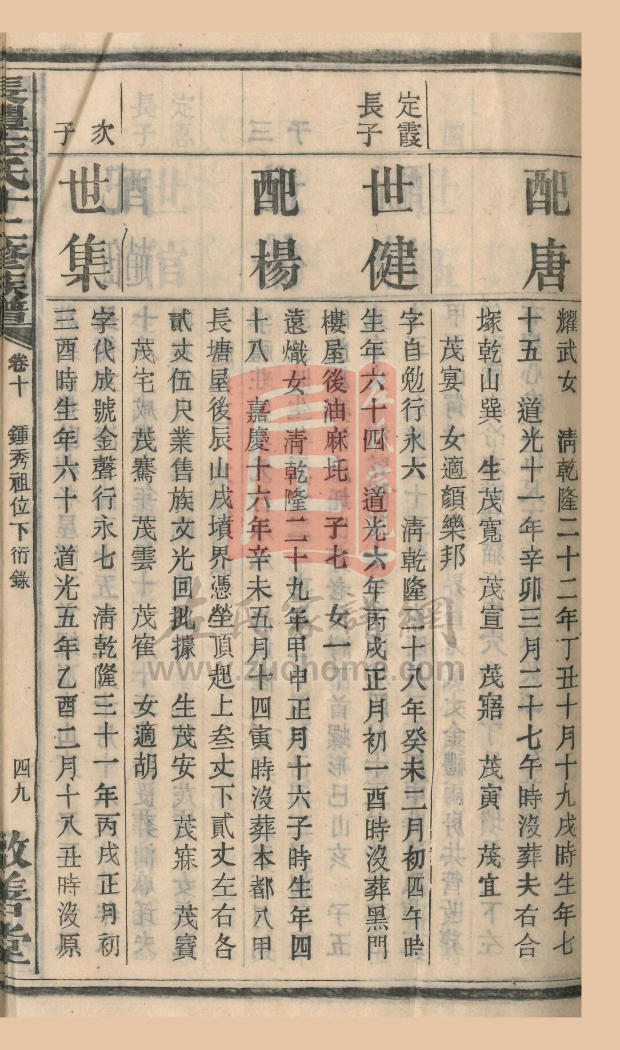 配唐
耀武女　清乾隆二十二年丁丑十月十九戌時生年七
十五　道光十一年辛卯三月二十七午時沒葬夫右合
塚乾山巽　生茂寬　茂宣　茂寤　茂寅　茂宜
茂宴　女適顏樂邦
定霞
長子
世健
字自勉行永六　清乾隆二十八年癸未二月初四午時
生年六十四　道光六年丙戌正月初一酉時沒葬黑門
樓屋後油麻坨　子七　女一
配楊
遠熾女　清乾隆二十九年甲申正月十六子時生年四
十八　嘉慶十六年辛未五月十四寅時沒葬本都八甲
長塘屋後辰山戌墳界憑塋頂起上叁丈下貳丈左右各
貳丈伍尺業售族文光回批據　生茂安　茂寐　茂寶
茂宅　茂騫　茂雲　茂隺　女適胡
次
子
世集
字代成號金聲行永七　清乾隆三十一年丙戌正月初
三酉時生年六十　道光五年乙酉二月十八丑時沒原
左氏家譜網
www.zuohome.com
氏十二修族譜
卷十
鍾秀祖位下衍錄
四九
敬善堂